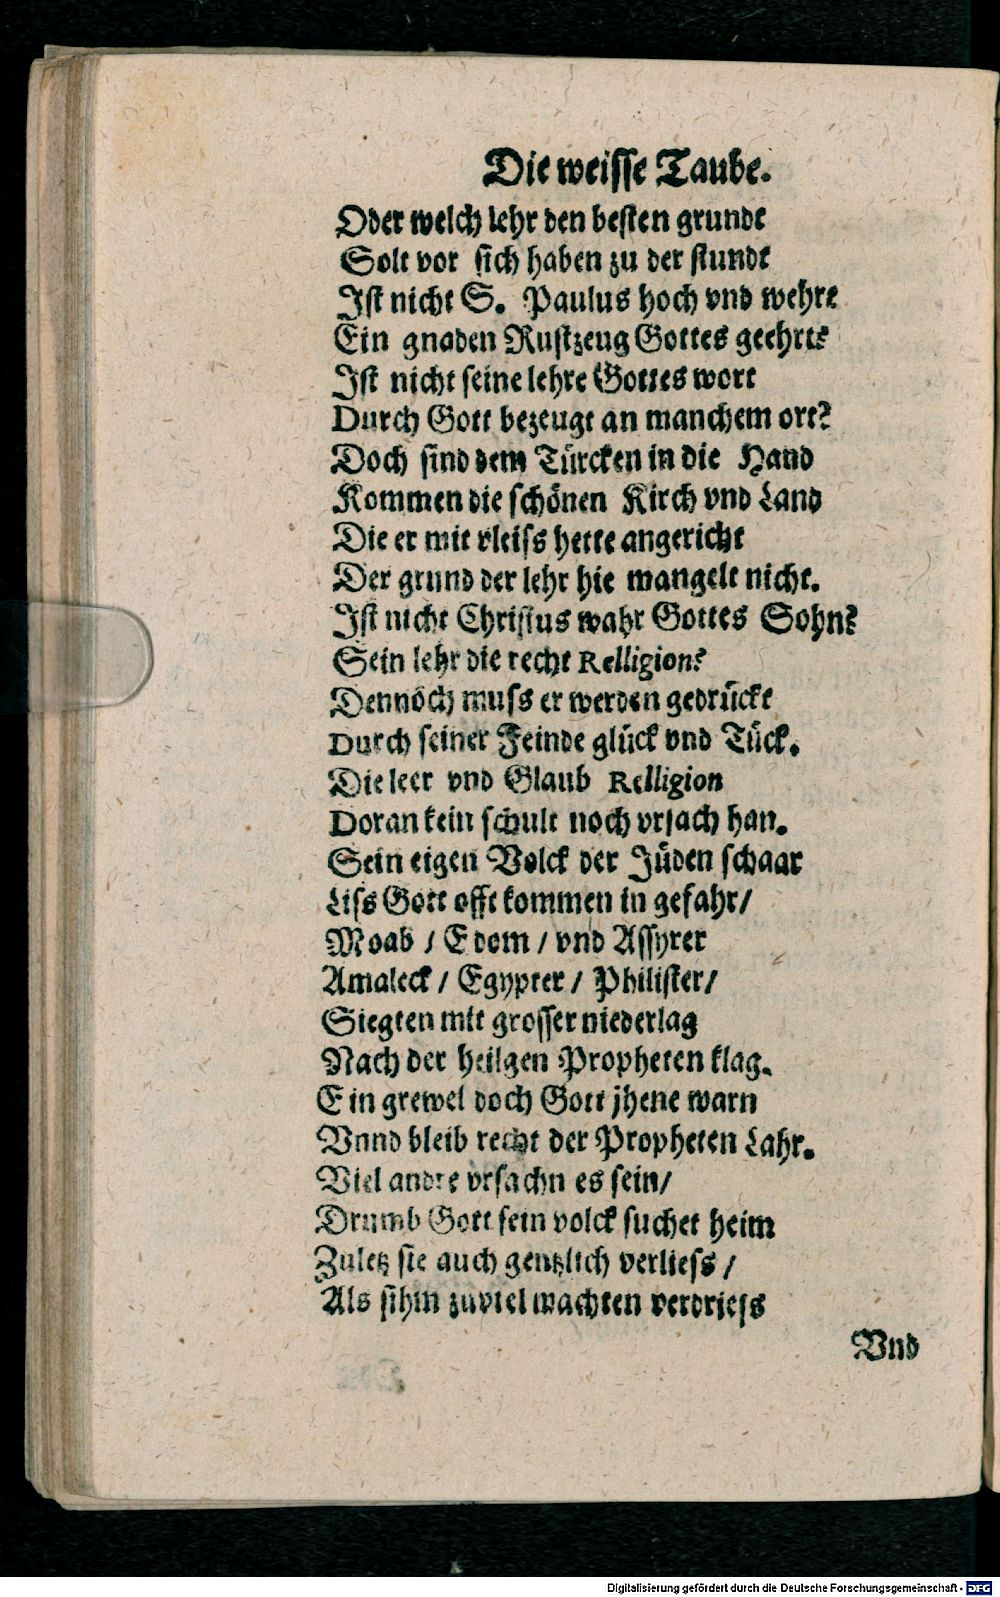 Die weisse Taube.
Oder welch lehr den besten grundt
Solt vor sich haben zu der stundt
Ist nicht S. Paulus hoch vnd wehrt
Ein gnaden Rustzeug Gottes geehrt?
Ist nicht seine lehre Gottes wort
Durch Gott bezeugt an manchem ort?
Doch sind dem Türcken in die Hand
Kommen die schönen Kirch vnd Land
Die er mit vleiss hette angericht
Der grund der lehr hie mangelt nicht.
Ist nicht Christus wahr Gottes Sohn?
Sein lehr die recht Relligion?
Dennoch muss er werden gedrückt
Durch seiner Feinde glück vnd Tück.
Die leer vnd Glaub Relligion
Doran kein schult noch vrsach han.
Sein eigen Volck der Jüden schaar
Liss Gott offt kommen in gefahr/
Moab / Edom / vnd Assyrer
Amaleck / Egypter / Philister/
Siegten mit grosser niederlag
Nach der heilgen Propheten klag.
Ein grewel doch Gott jhene warn
Vnnd bleib recht der Propheten Lahr.
Viel andre vrsachn es sein/
Drumb Gott sein volck suchet heim
Zuletz sie auch gentzlich verliess /
Als sihm zuviel machten verdriess
Vnd
Digitalisierung gefördert durch die Deutsche Forschungsgemeinschaft - DFG